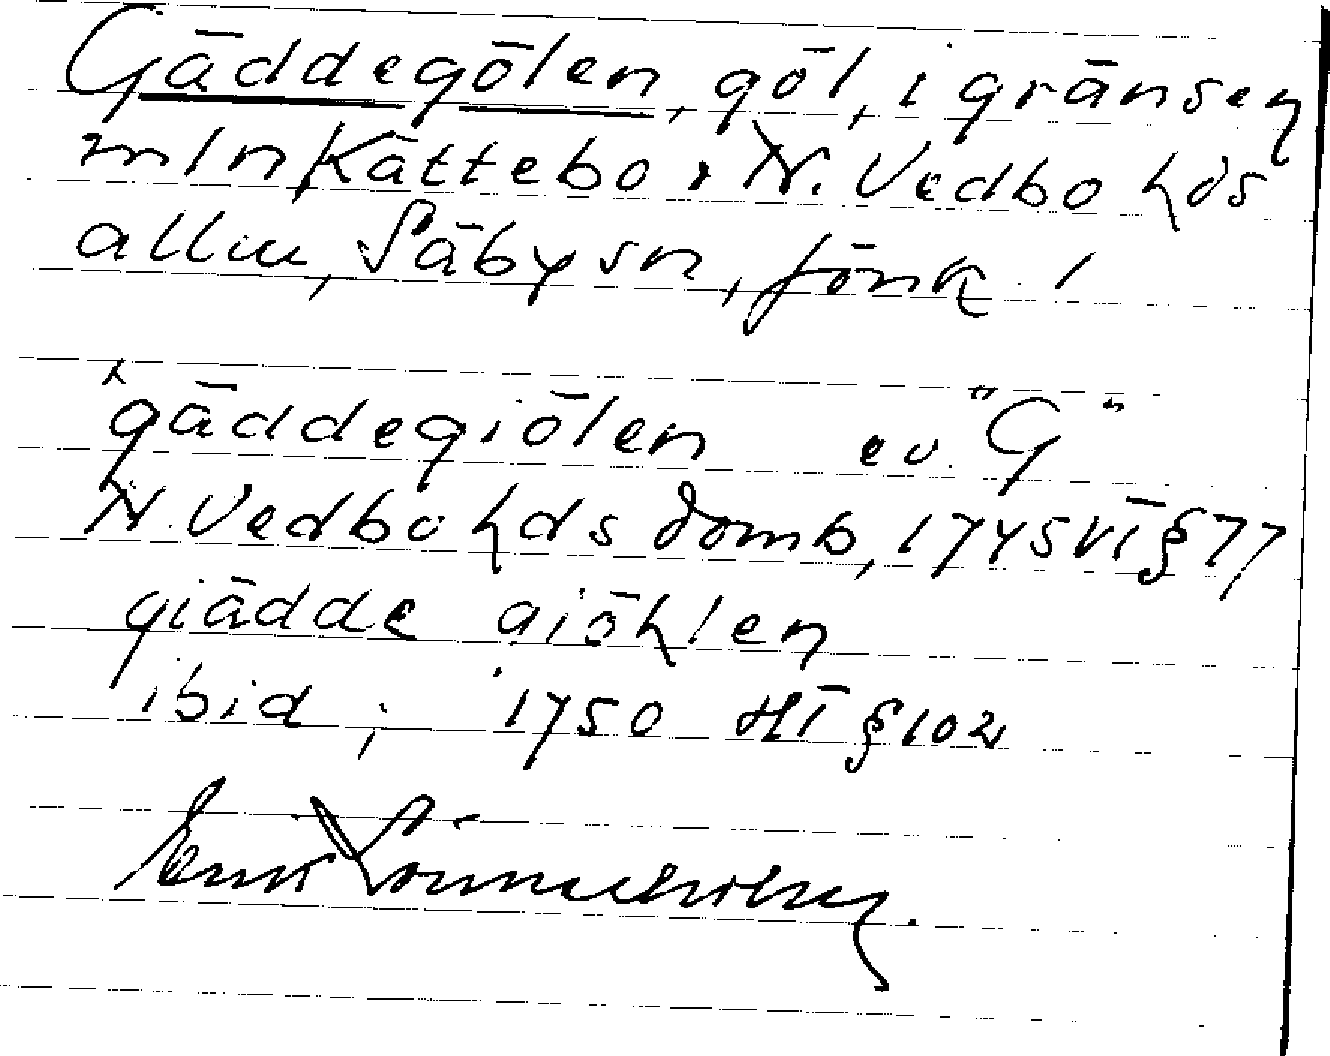 Gäddegölen, göl, i gränsen
mln Kättebo, N. Vedbo hds
allm, Säby sn, Jönk. l
gäddegiölen ev. "G"
N. Vedbo hds domb, 1745 VT § 77
giädde giöhlen
ibid; 1750 HT § 102
Erik